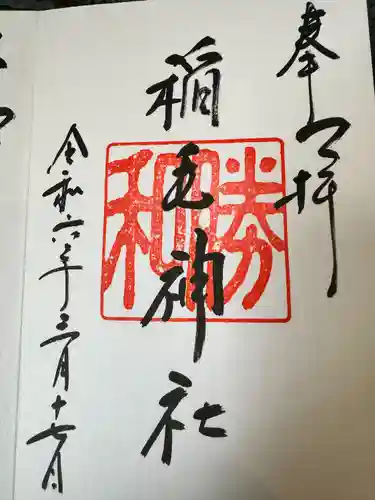 奉拝
稲毛神社
勝和
令和六年三月十七日